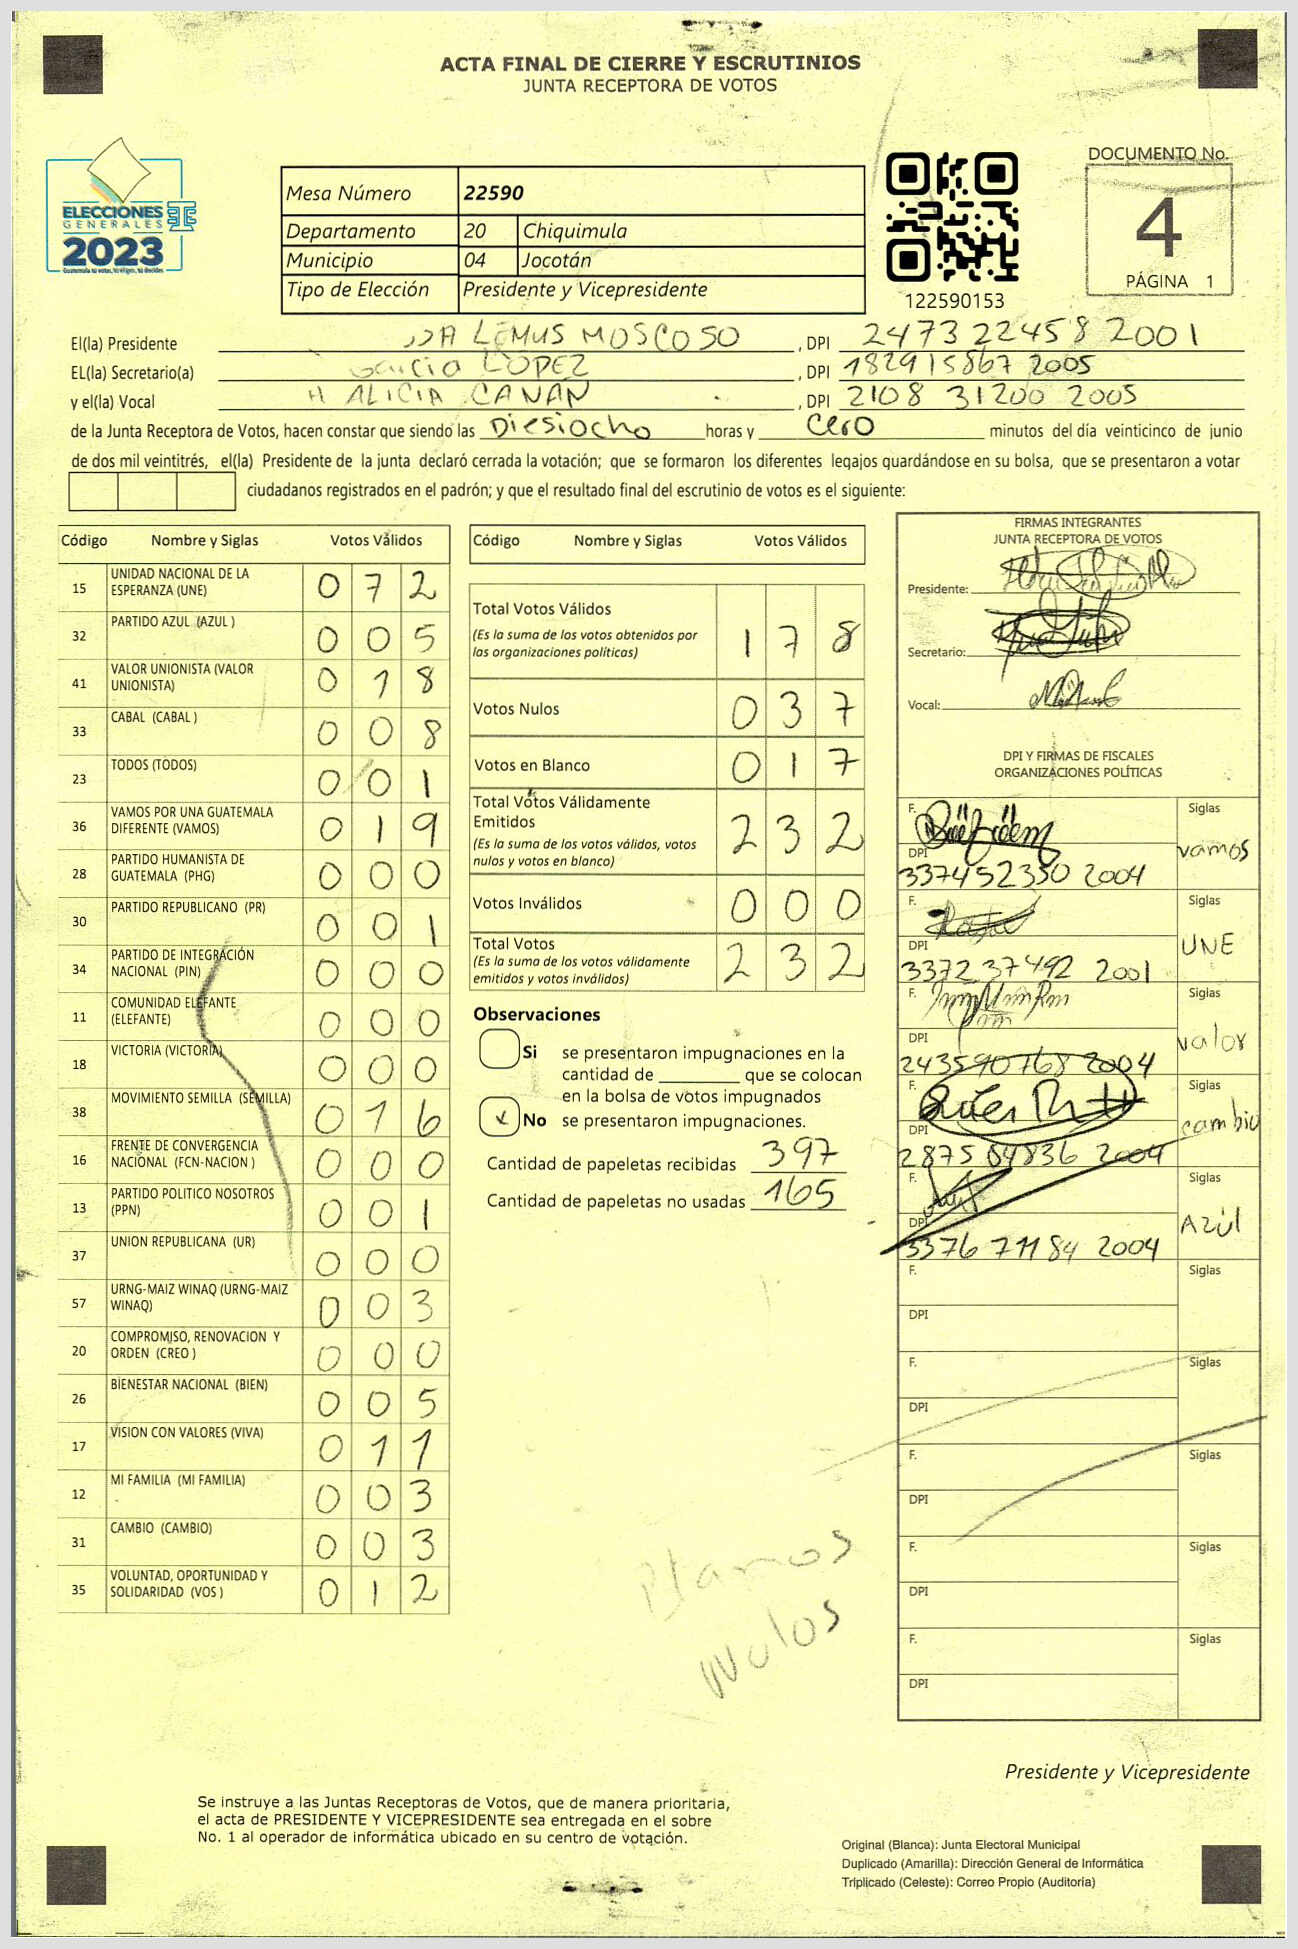 ACTA FINAL DE CIERRE Y ESCRUTINIOS
JUNTA RECEPTORA DE VOTOS
DOCUMENTO No.
4
PÁGINA 1
ELECCIONES
GENERALES
2023
Guatemala tú votas, tú eliges, tú decides
Mesa Número 22590
Departamento 20 Chiquimula
Municipio 04 Jocotán
Tipo de Elección Presidente y Vicepresidente
122590153
El(la) Presidente LEMUS MOSCOSO , DPI 2473 22458 2001
EL(la) Secretario(a) Garcia LOPEZ , DPI 182915867 2005
y el(la) Vocal ALICIA CANAN , DPI 2108 31200 2005
de la Junta Receptora de Votos, hacen constar que siendo las Diesiocho horas y cero minutos del día veinticinco de junio
de dos mil veintitrés, el(la) Presidente de la junta declaró cerrada la votación; que se formaron los diferentes legajos guardándose en su bolsa, que se presentaron a votar
ciudadanos registrados en el padrón; y que el resultado final del escrutinio de votos es el siguiente:
Código Nombre y Siglas Votos Válidos
15 UNIDAD NACIONAL DE LA ESPERANZA (UNE) 0 7 2
32 PARTIDO AZUL (AZUL ) 0 0 5
41 VALOR UNIONISTA (VALOR UNIONISTA) 0 1 8
33 CABAL (CABAL ) 0 0 8
23 TODOS (TODOS) 0 0 1
36 VAMOS POR UNA GUATEMALA DIFERENTE (VAMOS) 0 1 9
28 PARTIDO HUMANISTA DE GUATEMALA (PHG) 0 0 0
30 PARTIDO REPUBLICANO (PR) 0 0 1
34 PARTIDO DE INTEGRACIÓN NACIONAL (PIN) 0 0 0
11 COMUNIDAD ELEFANTE (ELEFANTE) 0 0 0
18 VICTORIA (VICTORIA) 0 0 0
38 MOVIMIENTO SEMILLA (SEMILLA) 0 1 6
16 FRENTE DE CONVERGENCIA NACIONAL (FCN-NACION ) 0 0 0
13 PARTIDO POLITICO NOSOTROS (PPN) 0 0 1
37 UNION REPUBLICANA (UR) 0 0 0
57 URNG-MAIZ WINAQ (URNG-MAIZ WINAQ) 0 0 3
20 COMPROMISO, RENOVACION Y ORDEN (CREO ) 0 0 0
26 BIENESTAR NACIONAL (BIEN) 0 0 5
17 VISION CON VALORES (VIVA) 0 1 1
12 MI FAMILIA (MI FAMILIA) 0 0 3
31 CAMBIO (CAMBIO) 0 0 3
35 VOLUNTAD, OPORTUNIDAD Y SOLIDARIDAD (VOS ) 0 1 2
Código Nombre y Siglas Votos Válidos
Total Votos Válidos 1 7 8
(Es la suma de los votos obtenidos por
las organizaciones políticas)
Votos Nulos 0 3 7
Votos en Blanco 0 1 7
Total Votos Válidamente
Emitidos 2 3 2
(Es la suma de los votos válidos, votos
nulos y votos en blanco)
Votos Inválidos 0 0 0
Total Votos 2 3 2
(Es la suma de los votos válidamente
emitidos y votos inválidos)
Observaciones
Si se presentaron impugnaciones en la
cantidad de ________ que se colocan
en la bolsa de votos impugnados
No se presentaron impugnaciones.
Cantidad de papeletas recibidas 397
Cantidad de papeletas no usadas 165
FIRMAS INTEGRANTES
JUNTA RECEPTORA DE VOTOS
Presidente:
Secretario:
Vocal:
DPI Y FIRMAS DE FISCALES
ORGANIZACIONES POLÍTICAS
F. Siglas
vamos
DPI
337452350 2004
F. Siglas
UNE
DPI
3372 37492 2001
F. Siglas
valor
DPI
243590768 2004
F. Siglas
cambio
DPI
2875 84836 2004
F. Siglas
Azul
DPI
3376 71184 2004
F. Siglas
DPI
F. Siglas
DPI
F. Siglas
DPI
F. Siglas
DPI
F. Siglas
DPI
nulos
Presidente y Vicepresidente
Se instruye a las Juntas Receptoras de Votos, que de manera prioritaria,
el acta de PRESIDENTE Y VICEPRESIDENTE sea entregada en el sobre
No. 1 al operador de informática ubicado en su centro de votación.
Original (Blanca): Junta Electoral Municipal
Duplicado (Amarilla): Dirección General de Informática
Triplicado (Celeste): Correo Propio (Auditoría)